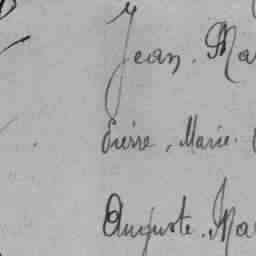 Jean. Ma
Pierre, Marie.
Auguste. Ma